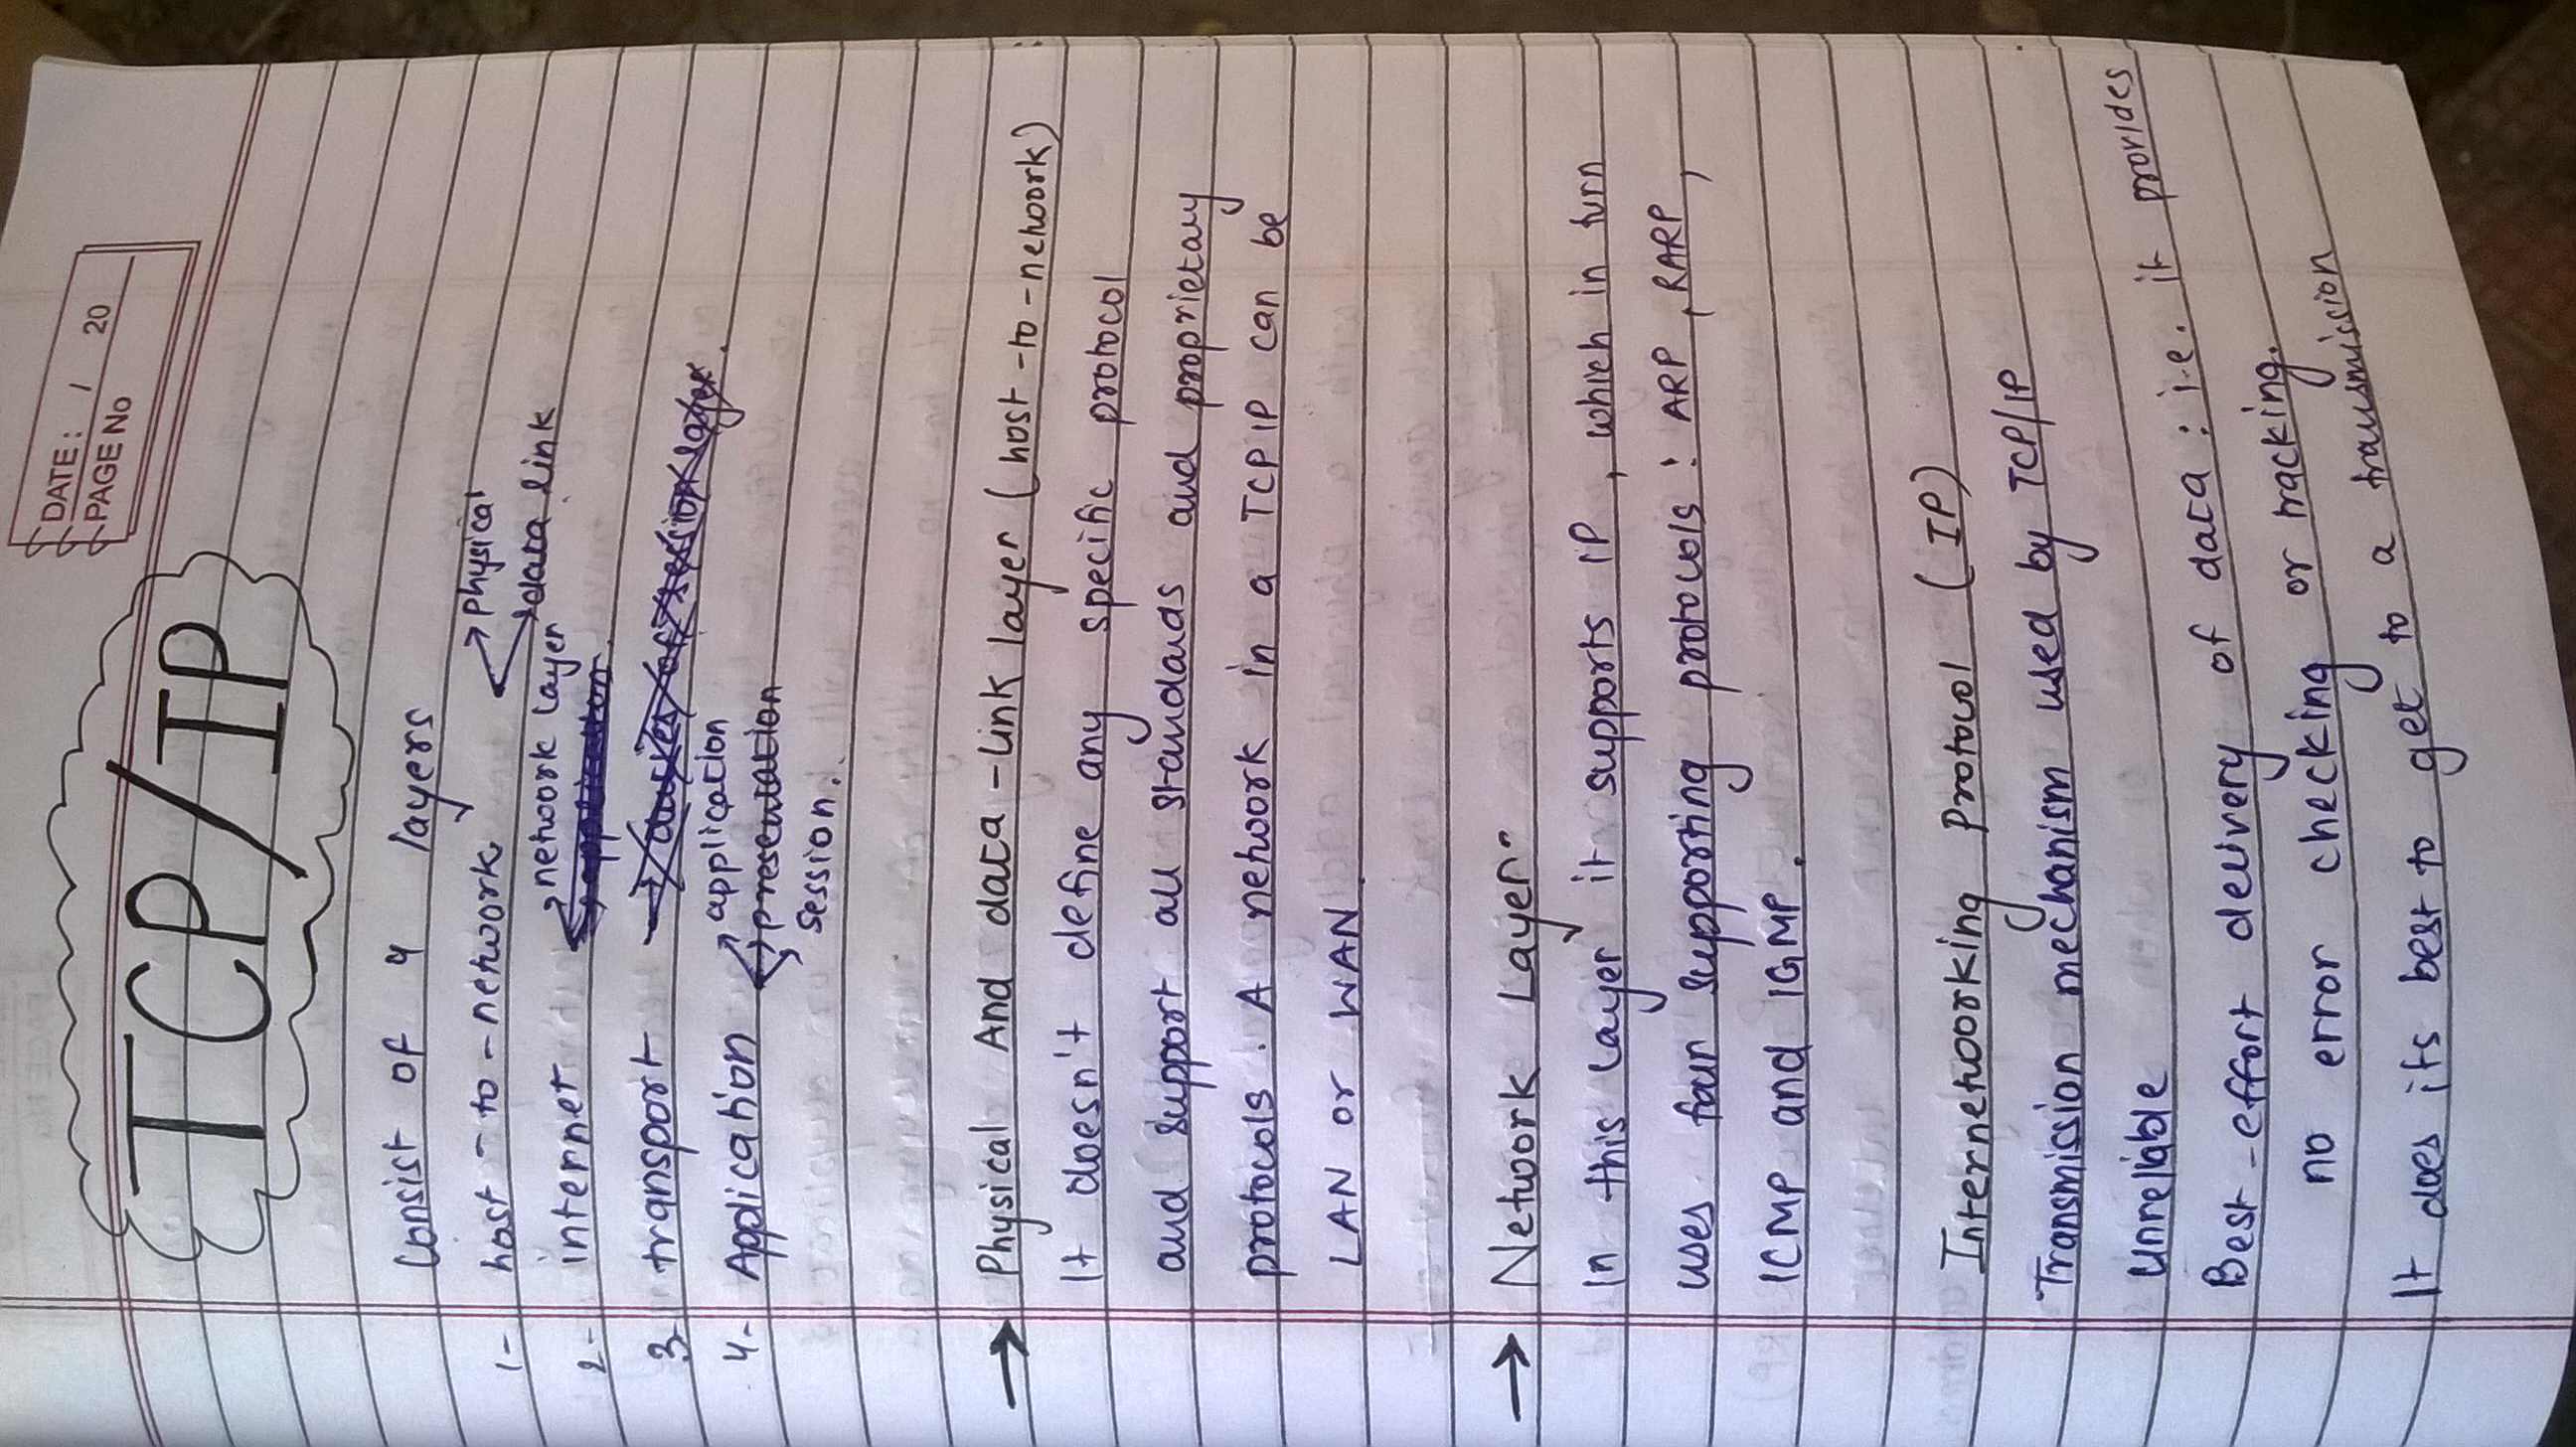 DATE: / 20
PAGE No
TCP/IP
Consist of 4 layers
1- host-to-network physical
data link
2- internet network layer
application.
3- transport duties of session layer.
4- Application application
presentation
session.
Physical And data-link layer (host-to-network)
It doesn't define any specific protocol
and support all standards and proprietary
protocols. A network in a TCP IP can be
LAN or WAN.
Network Layer-
In this layer it supports IP, which in turn
uses four supporting protocols: ARP, RARP,
ICMP and IGMP.
Internetworking Protocol (IP)
Transmission mechanism used by TCP/IP
Unreliable
Best-effort delivery of data: i.e. it provides
no error checking or tracking.
It does its best to get to a transmission